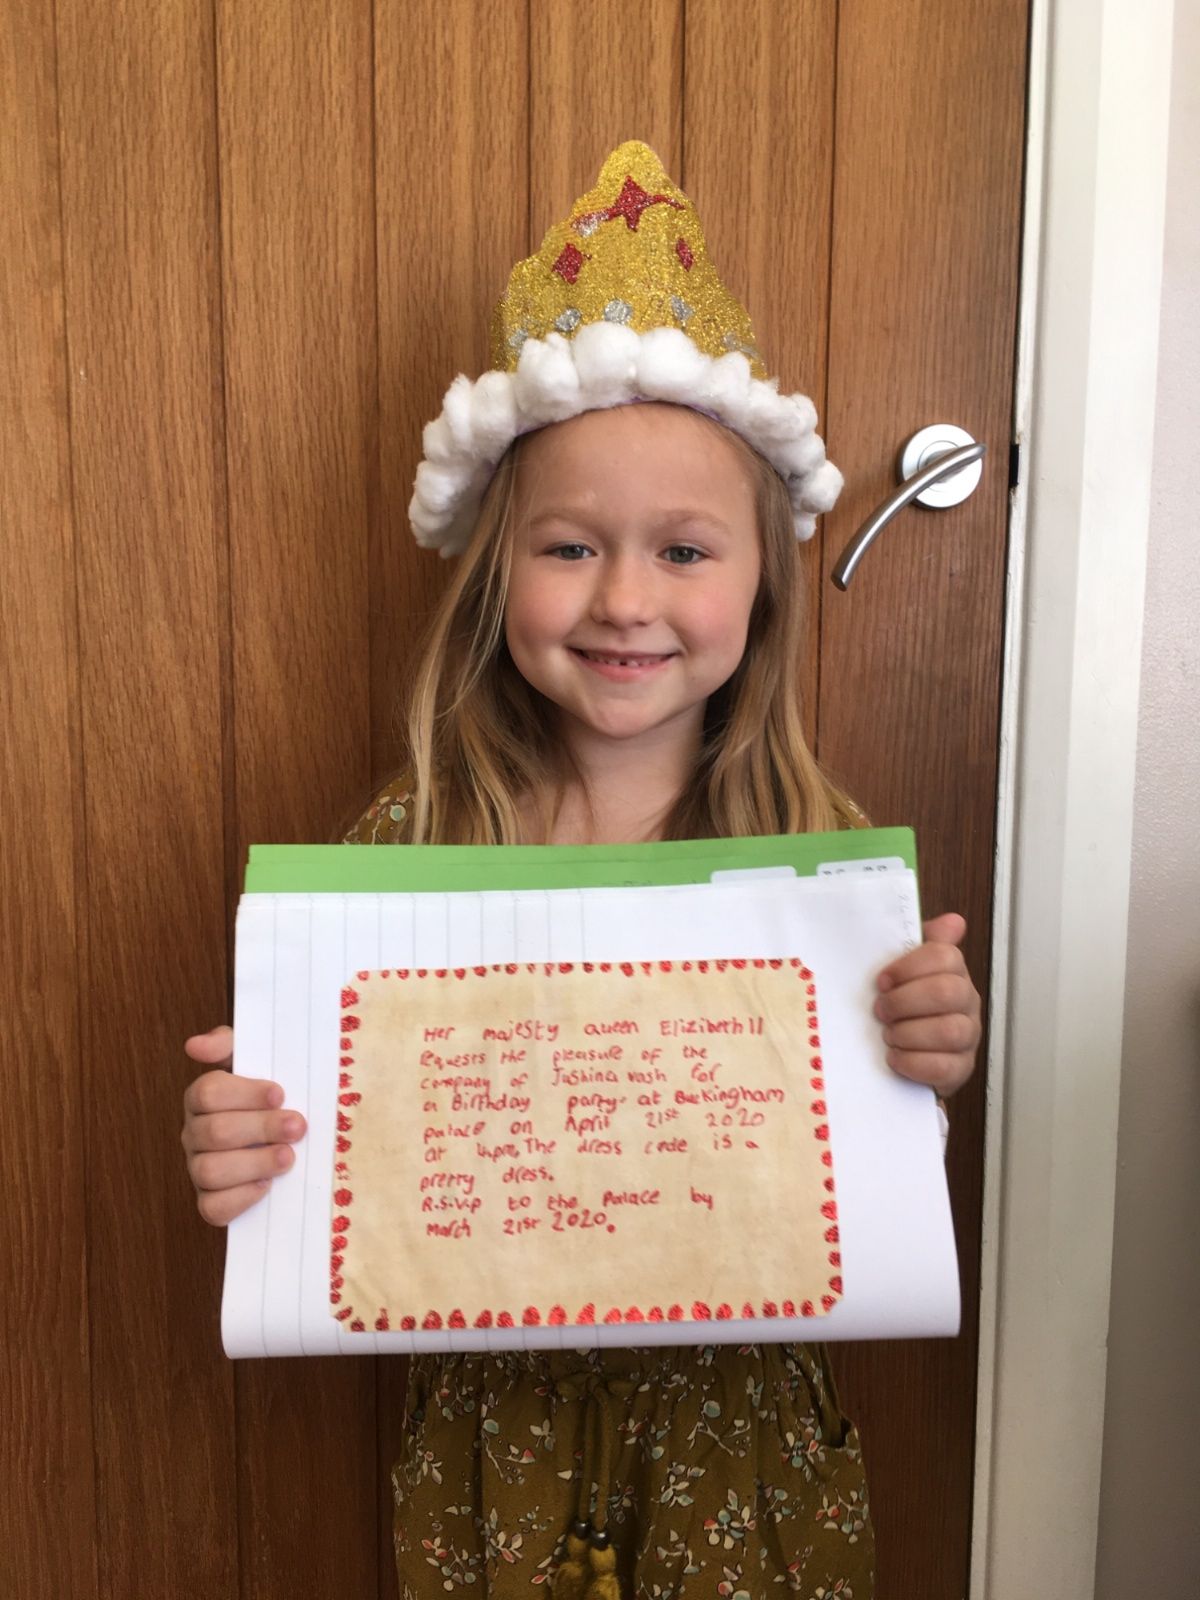 Her majesty queen Elizibeth II
requests the pleasure of the
company of for
a Birthday party at Buckingham
palace on April 21st 2020
at 4pm. The dress code is a
pretty dress.
R.S.V.p to the palace by
March 21st 2020.